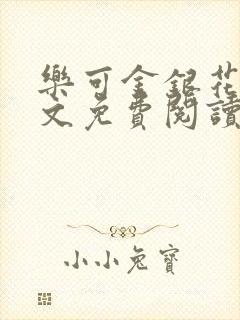 樂可金銀花
文免費閱讀
小小兔寶